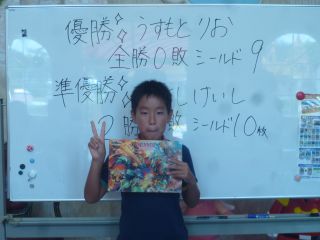 優勝 うすもとりお
全勝0敗 シールド9
準優勝 しけいし
2勝 敗 シールド10枚